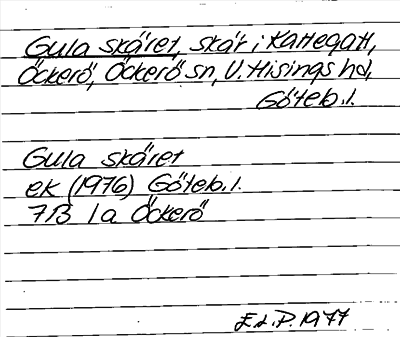 Gula skäret, skär i Kattegatt,
Öckerö, Öckerö sn, V. Hisings hd,
Göteb. l.
Gula skäret
ek (1976) Göteb. l.
7B 1a Öckerö
E.L.P. 1977